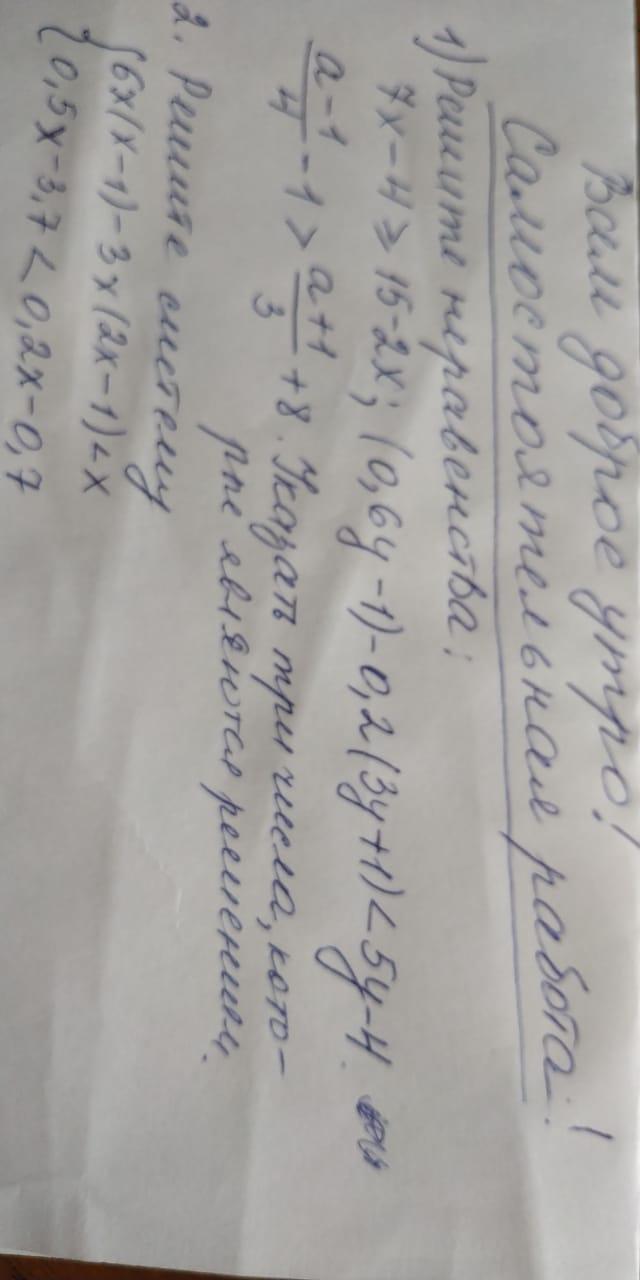 Вам доброе утро!
Самостоятельная работа!
1) Решите неравенства:
7x-4 ⩾ 15-2x; (0,6y-1)-0,2(3y+1)<5y-4.
\frac{a-1}{4} - 1 > \frac{a+1}{3} + 8. Указать три числа, кото-
рые являются решением.
2. Решите систему
{6x(x-1)-3x(2x-1)<x
{0,5x-3,7<0,2x-0,7